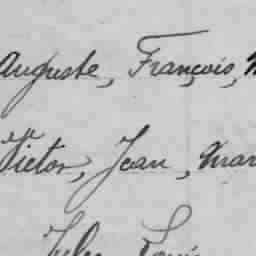 Auguste, François,
Victor, Jean, Mar
Jules Louis